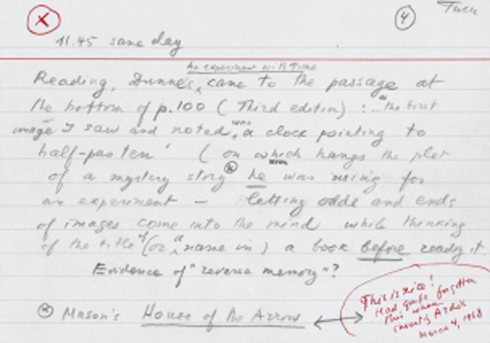 x
4
11.45 same day
An experiment with Time
Reading, Dunne's, came to the passage at
the bottom of p.100 (Third edition): "... the first
image I saw and noted, was a clock pointing to
half-past ten" (on which hangs the plot
of a mystery story ⊗ he was using for
an experiment — letting odds and ends
of images come into the mind while thinking
of the title "(or a name in) a book before reading it.
Evidence of "reverse memory"?
⊗ Mason's House of the Arrow
This is nice!
Had quite forgotten
this when
March 4, 1968